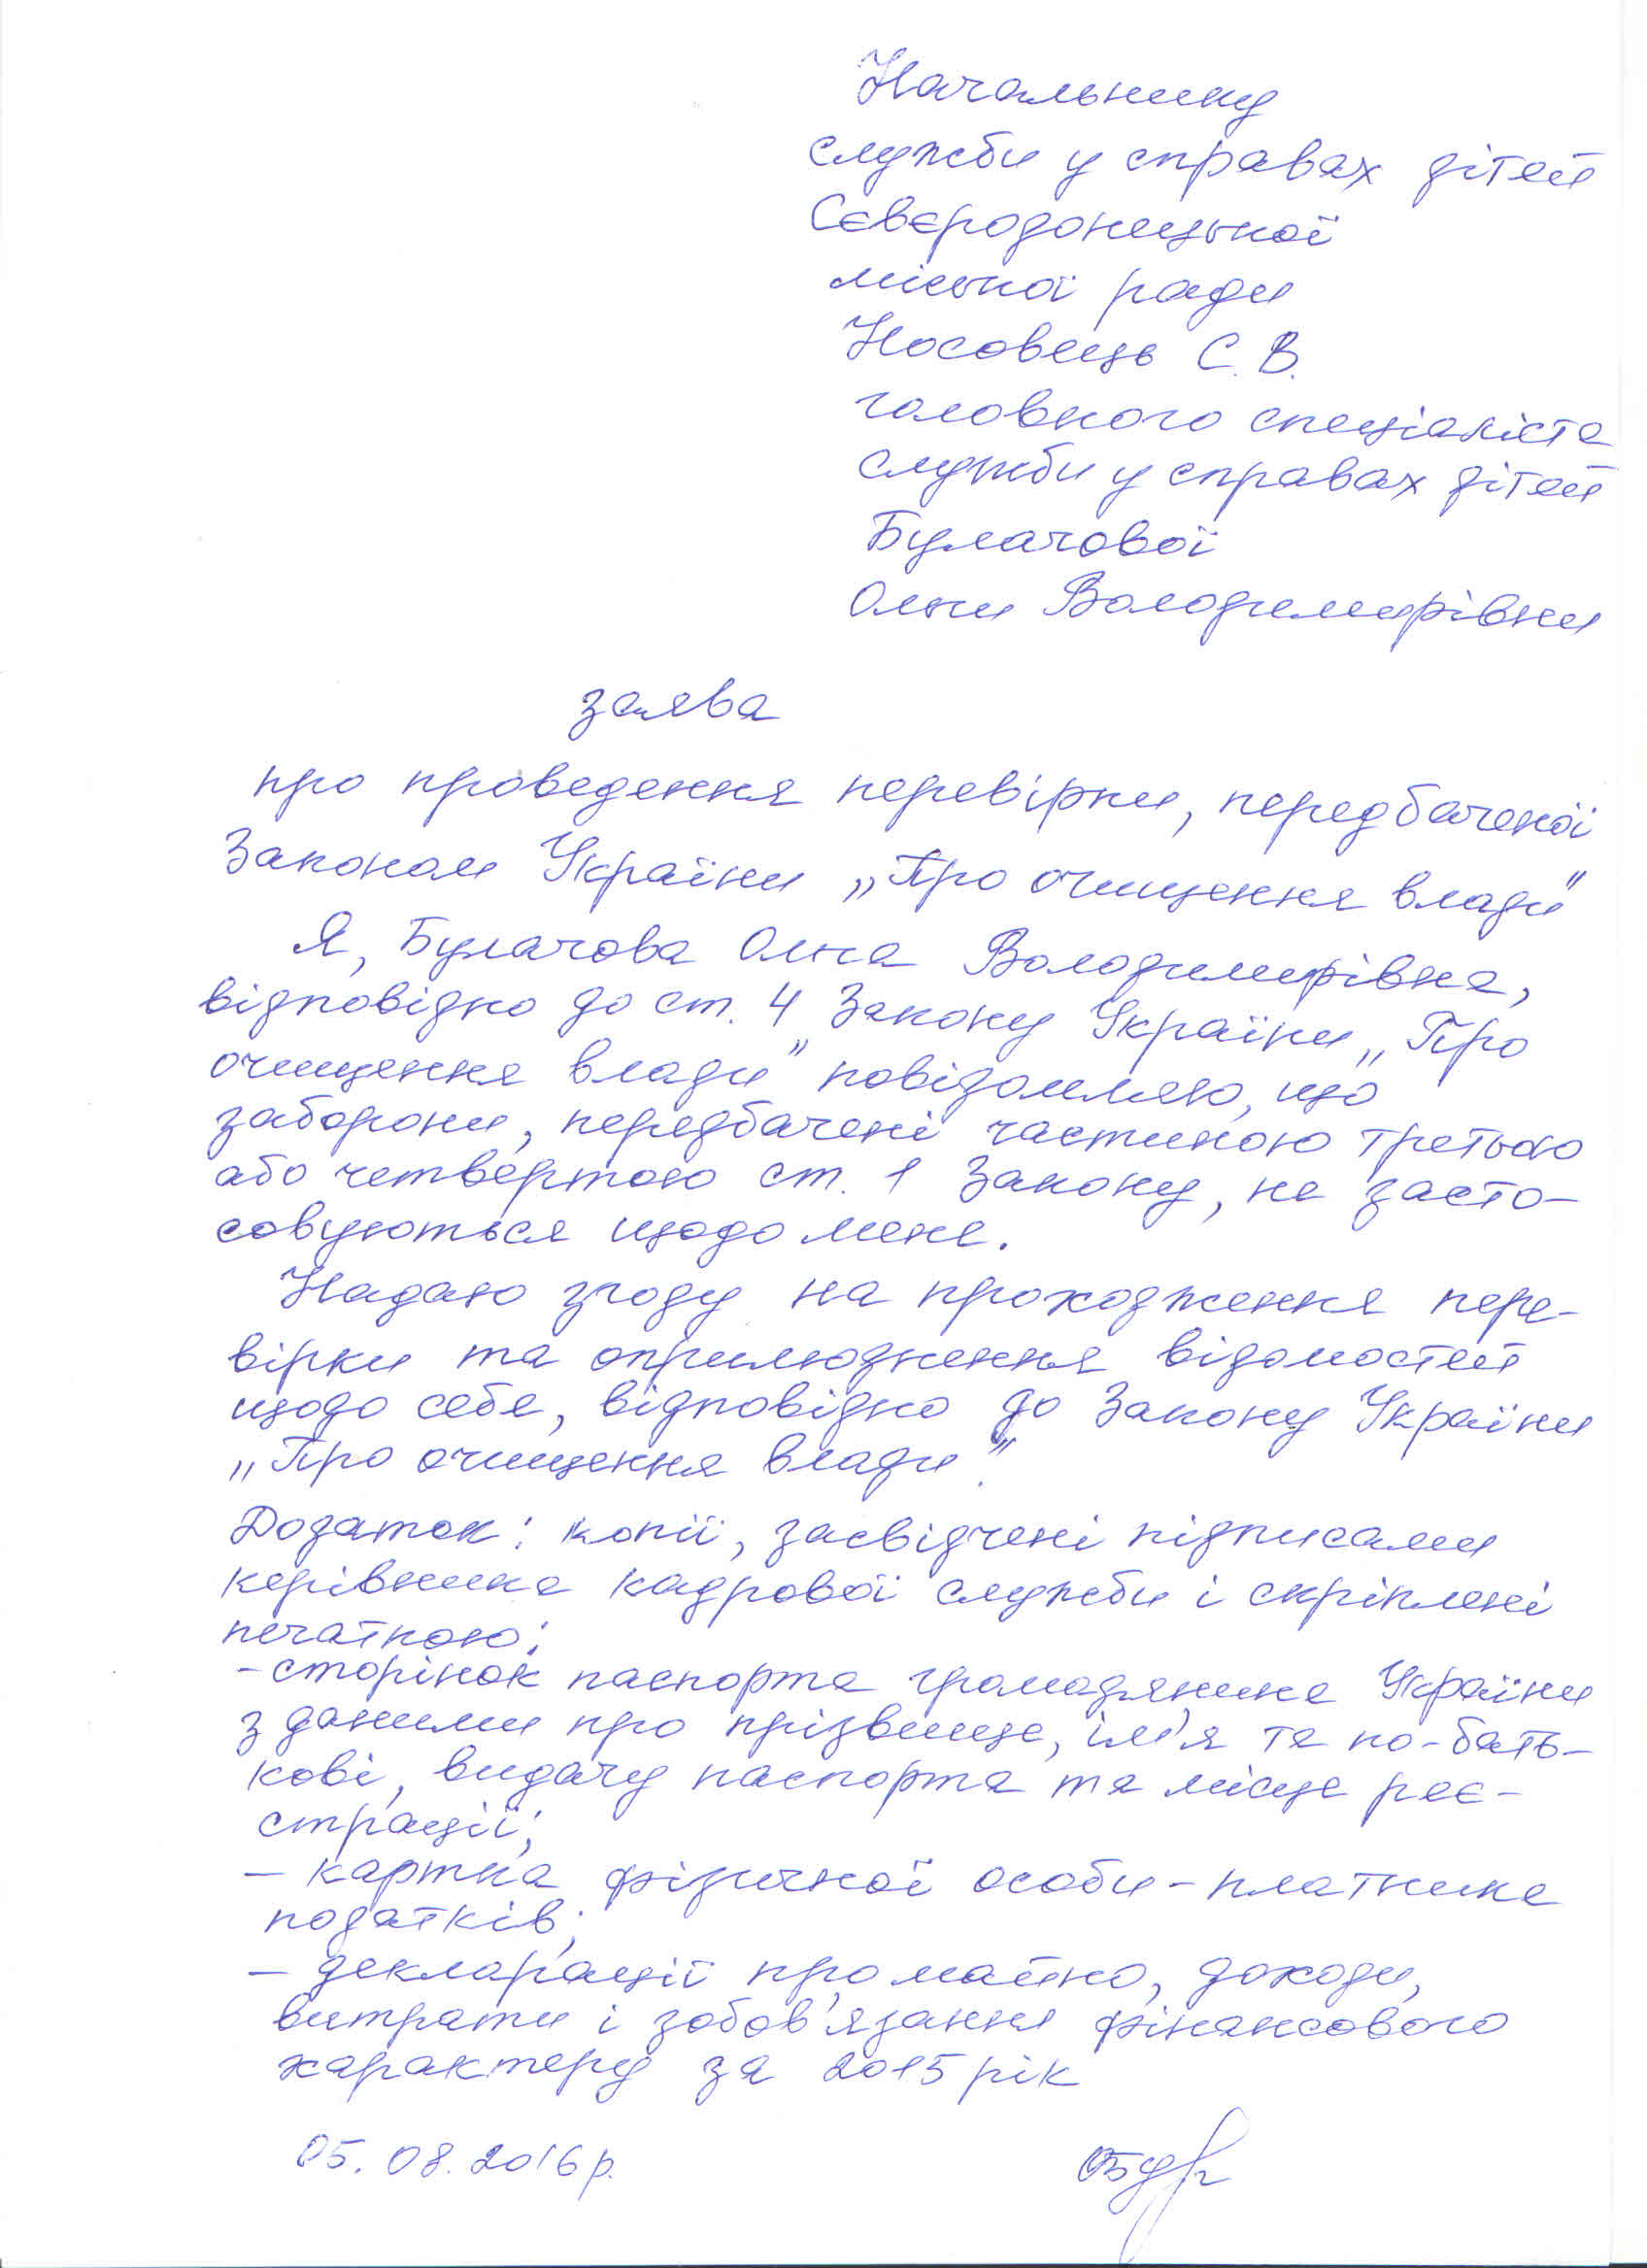 Начальнику
служби у справах дітей
Сєвєродонецької
міської ради
Носовець С.В.
головного спеціаліста
служби у справах дітей
Булачової
Ольги Володимирівни
заява
про проведення перевірки, передбаченої
Законом України „Про очищення влади"
Я, Булачова Ольга Володимирівна,
відповідно до ст. 4 Закону України „Про
очищення влади" повідомляю, що
заборони, передбачені частиною третьою
або четвертою ст. 1 Закону, не засто-
совуються щодо мене.
Надаю згоду на проходження пере-
вірки та оприлюднення відомостей
щодо себе, відповідно до Закону України
„Про очищення влади".
Додаток: копії, засвідчені підписами
керівника кадрової служби і скріплені
печаткою:
- сторінок паспорта громадянина України
з даними про прізвище, ім'я та по-бать-
кові, видачу паспорта та місце реє-
страції;
- картка фізичної особи - платника
податків;
- декларації про майно, доходи,
витрати і зобов'язання фінансового
характеру за 2015 рік
05.08.2016р.